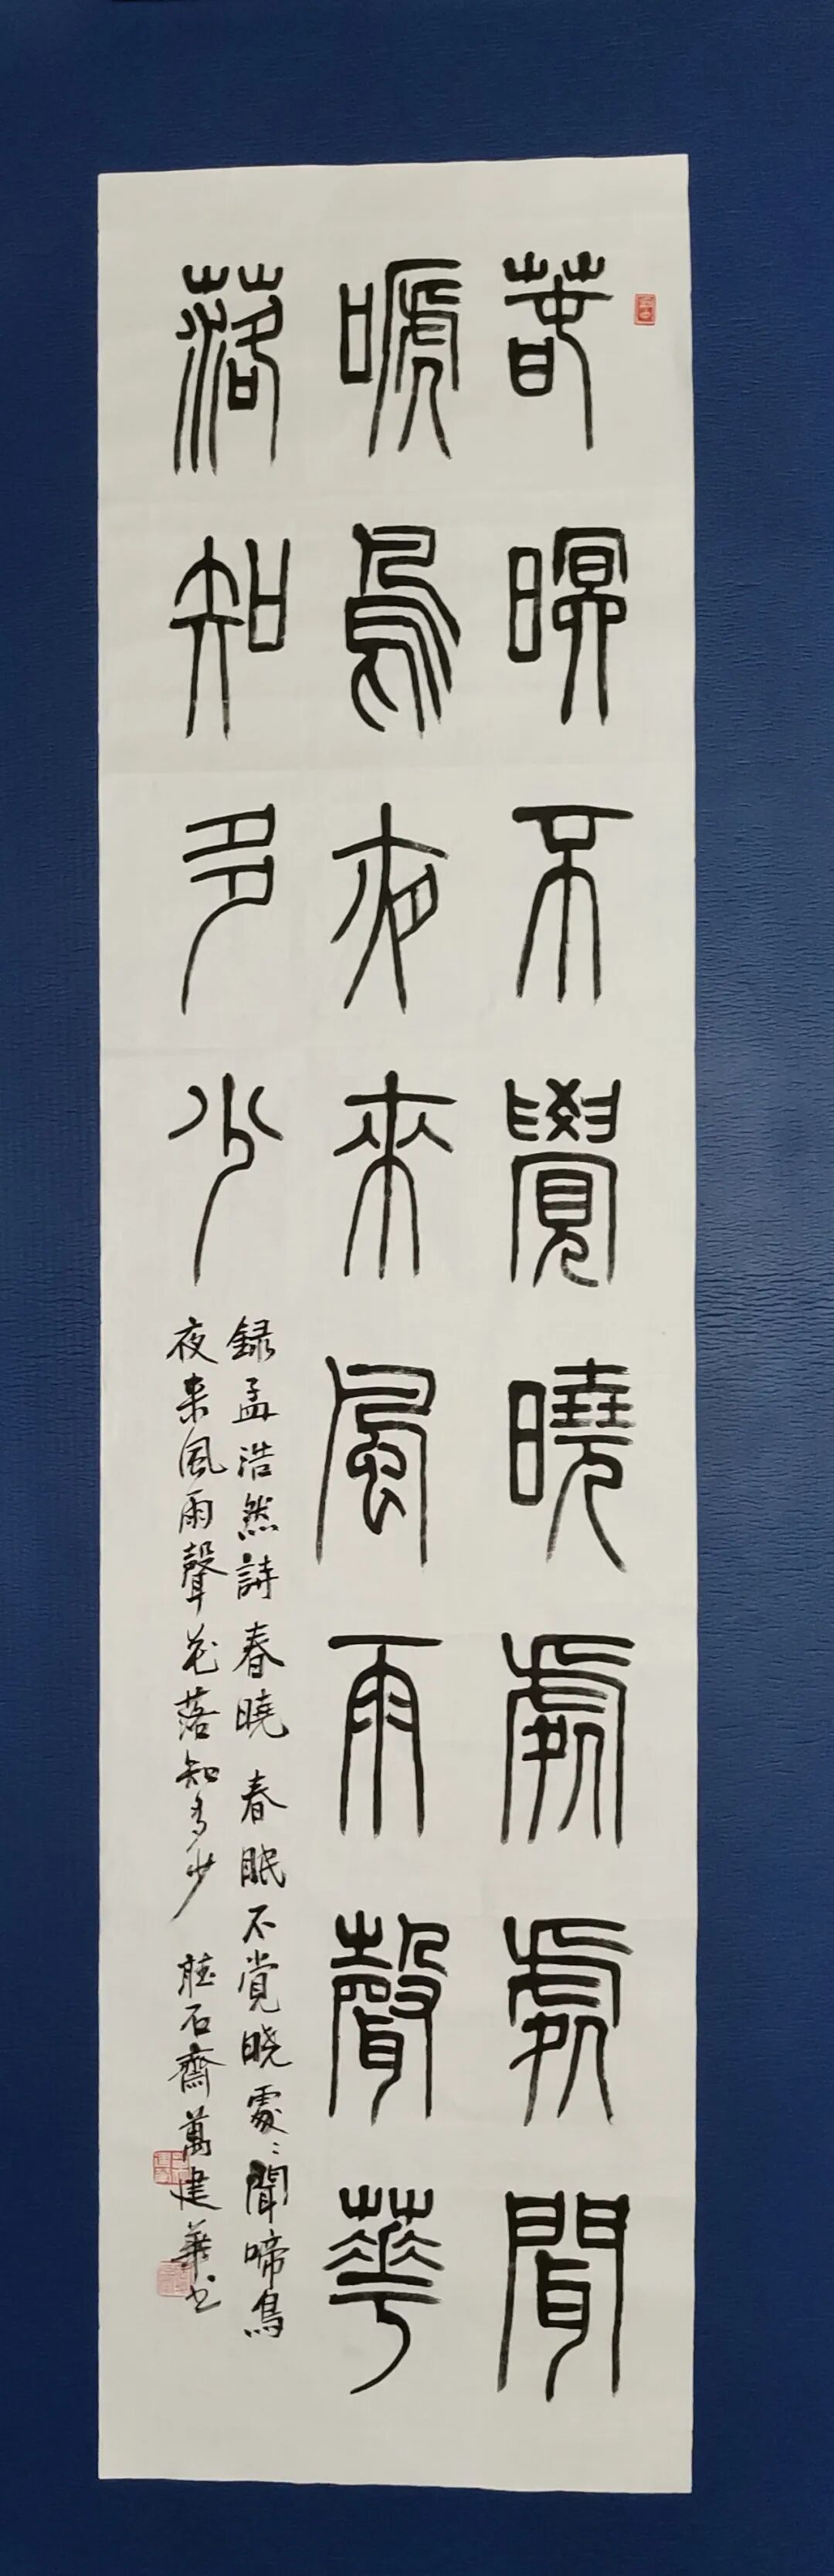 春瞑不覺曉處處聞
嗁鳥夜來風雨聲華
落知多少
録孟浩然詩春曉 春眠不覚曉處〻聞啼鳥
夜来風雨聲花落知多少 石齋萬建華书